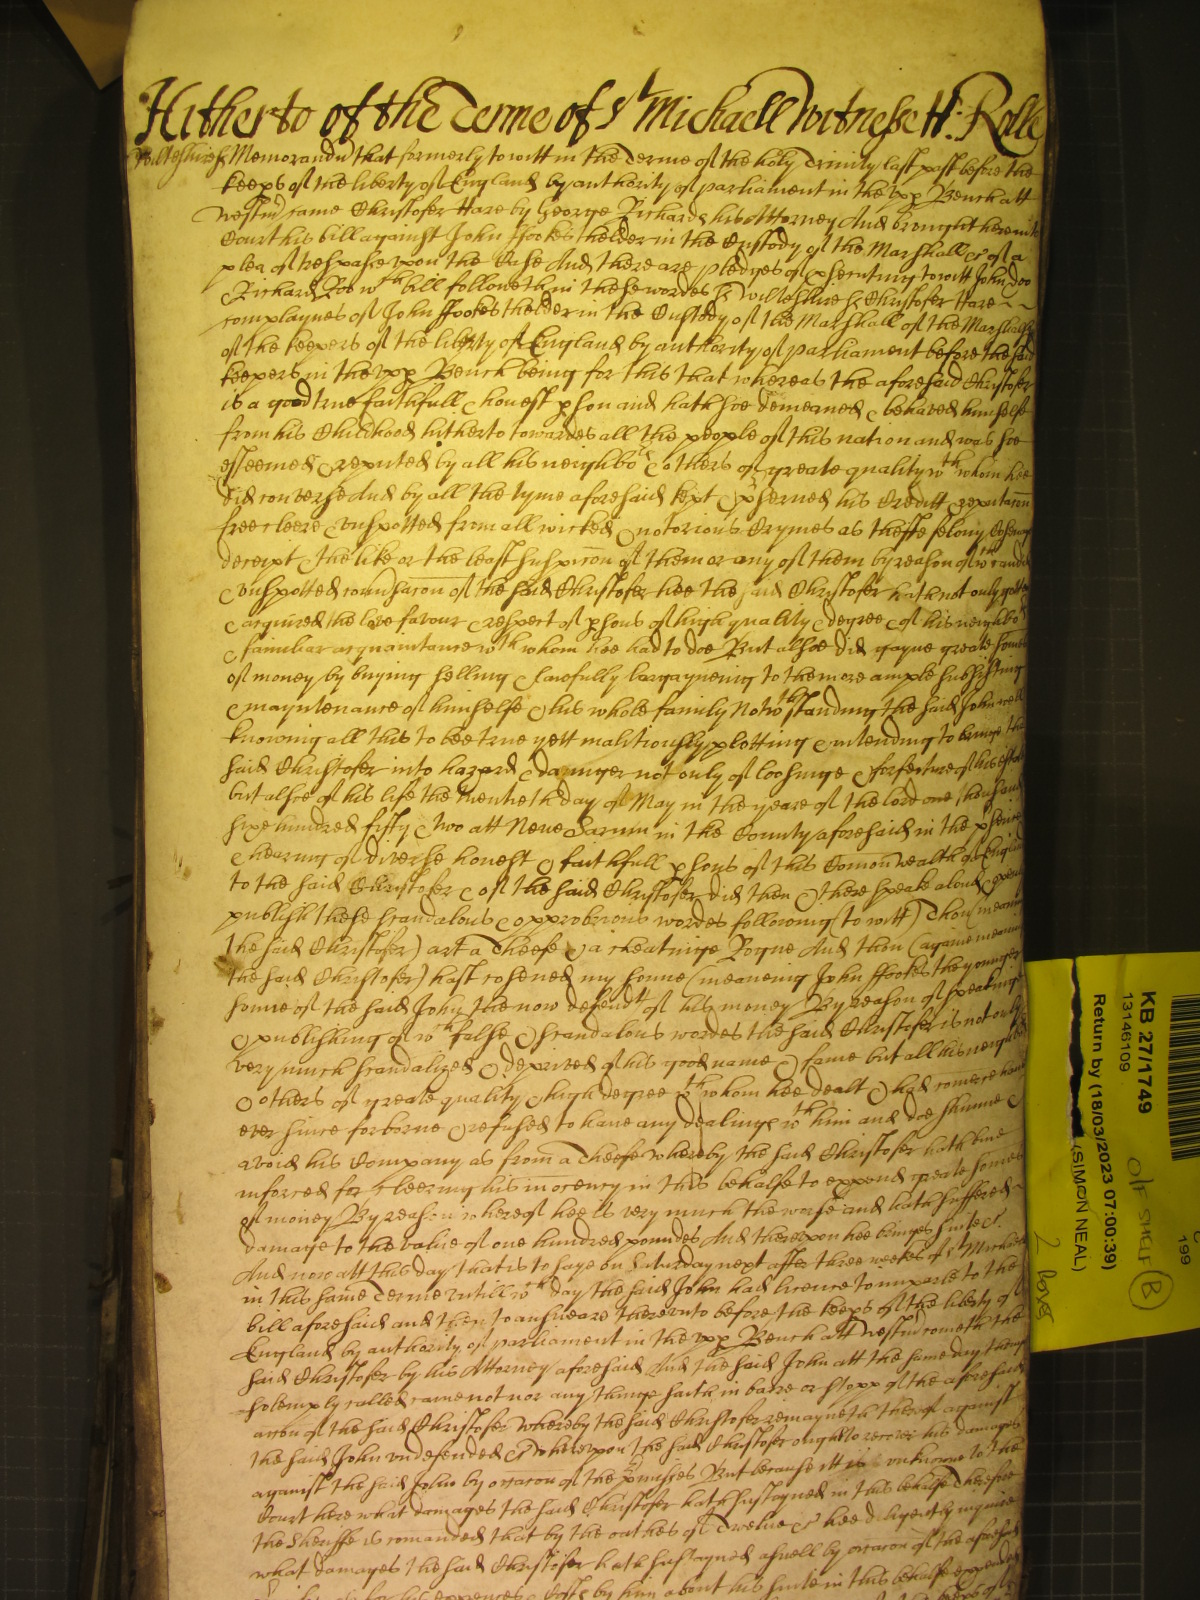 Hitherto of the Terme of St Michaell Witnesse H: Rolle
Wilteshire ss Memorandu that formerly to witt in the Terme of the holy Trinity last past before the
keeps of the liberty of England by authority of parliament in the vpp Bench att
Westmr came Christofer Hare by George Richards his Attorney And brought here into
Court his bill against John ffookes thelder in the Custody of the Marshall &c of a
plea of trespasse vpon the Case And there are pledges of psecuting to witt John Doo
Richard Roo wch bill followeth in these wordes ss Wilteshire ss Christofer Hare
complaynes of John ffookes thelder in the Custody of the Marshall of the Marshalsey
of the keepers of the liberty of England by authority of parliament before the said
keepers in the vpp Bench being for this that whereas the aforesaid Christofer
is a good true faithfull & honest pson and hath soe demeaned & behaved himselfe
from his Childhood hitherto towardes all the people of this nation and was soe
esteemed & reputed by all his neighbors & others of greate quality wth whom hee
did converse And by all the tyme aforesaid kept & pserved his Creditt & reputacon
free cleere & vnspotted from all wicked & notorious Crymes as theffe felony Cosenage
deceipt & the like or the least suspicon of them or any of them by reason of wch
& vnspotted conversacon of the said Christofer hee the said Christofer hath not only gotten
& acquired the love favour & respect of psons of high quality & degree & of his neighbors
& familiar acquaintance wth whom hee had to doe But alsoe did gayne greate somes
of money by buying selling & lawfully bargayneing to the more ample subsisting
& mayntenance of himselfe & his whole family Notwthstanding the said John well
knowing all this to bee true yett malitiously plotting & intending to bringe the
said Christofer into hazard & daunger not only of loosinge & forfeture of his estate
but alsoe of his life the twentieth day of May in the yeare of the lord one thousand
sixe hundred fifty & two att Newe Sarum in the County aforesaid in the psence
& hearing of diverse honest & faithfull psons of this Comonwealth of England
to the said Christofer & of the said Christofer did then & there speake aloud & openly
publish these scandalous & opprobrious wordes following (to witt) Thou (meaning
the said Christofer) art a Theefe & a cheatinge Rogue And thou (againe meaning
the said Christofer) hast cosened my sonne (meaneing John ffookes the younger
sonne of the said John the now defendt) of his money By reason of speaking
& publishing of wch false & scandalous wordes the said Christofer is not only
very much scandalized & deprived of his good name & fame but all his neighbors
& others of greate quality & high degree wth whom hee dealt & had comerce have
ever since forborne & refused to have any dealinge wth him and doe shunne &
avoid his Company as from a Theefe whereby the said Christofer hath bine
inforced for cleering his inocency in this behalfe to expend greate somes
of money By reason whereof hee is very much the worse and hath suffered
damage to the value of one hundred poundes And therevpon hee bringes suite &c
And now att this day that is to saye on Saturday next after three weekes of St Michaell
in this same Terme vntill wch day the said John had licence to imparle to the
bill aforesaid and then to answeare therevnto before the keeps of the liberty of
England by authority of parliament in the vpp Bench att Westmr cometh the
said Christofer by his Attorney aforesaid And the said John att the same day though
solempnly called came not nor any thinge saith in barre or stopp of the aforesaid
accon of the said Christofer whereby the said Christofer remayneth thereof against
the said John vndefended & wherevpon the said Christofer ought to recover his damages
against the said John by occacon of the pmisses But because itt is vnknowne to the
Court here what damages the said Christofer hath sustayned in this behalfe Therefore
the Sheriffe is comanded that by the oathes of Twelue &c hee diligently inquire
what damages the said Christofer hath sustayned aswell by occacon of the aforesaid
for his expences & costs by him about his suite in this behalfe expended
KB 27/1749
13146109
Return by (18/03/2023 07:00:39)
(SIMON NEAL)
O/F SHELF B
2 boxes
C
199